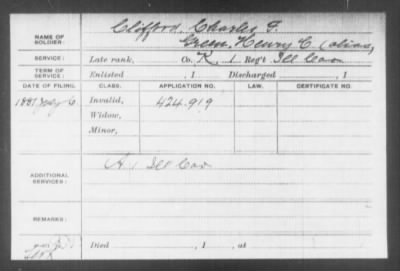 Clifford, Charles F.
NAME OF SOLDIER: Green, Henry C. (alias)
SERVICE: Late rank, Co. K, 1 Reg't Ill Cav
TERM OF SERVICE: Enlisted , 1 Discharged , 1
DATE OF FILING. CLASS. APPLICATION NO. LAW. CERTIFICATE NO.
1881 July 6 Invalid, 424.919
Widow,
Minor,
ADDITIONAL SERVICES: 1 Ill Cav
REMARKS:
Died , 1 , at